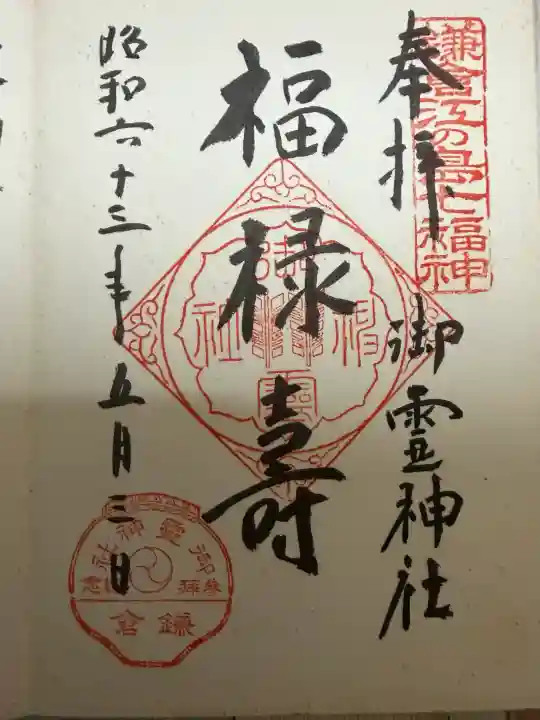 鎌倉江の島七福神
奉拝
御霊神社
福禄寿
昭和六十三年五月三日
御霊神社
御霊神社
参拝記念
鎌倉